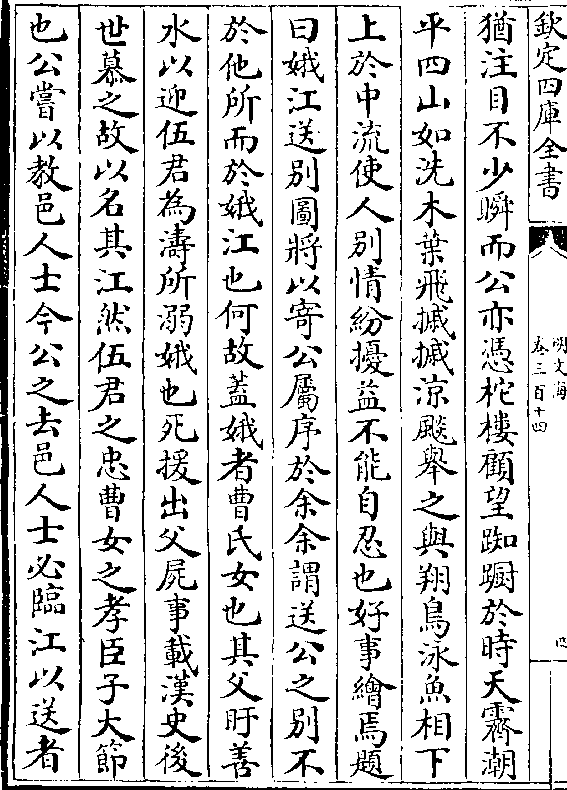 欽定四庫全書
明文海
卷三百十四
四
猶注目不少瞬而公亦憑柁樓顧望踟蹰於時天霽潮
平四山如洗木葉飛摵摵涼颷舉之與翔鳥泳魚相下
上於中流使人別情紛擾益不能自忍也好事繪焉題
曰娥江送別圖將以寄公屬序於余余謂送公之別不
於他所而於娥江也何故蓋娥者曹氏女也其父盱善
水以迎伍君為濤所溺娥也死援出父屍事載漢史後
世慕之故以名其江然伍君之忠曹女之孝臣子大節
也公嘗以教邑人士今公之去邑人士必臨江以送者